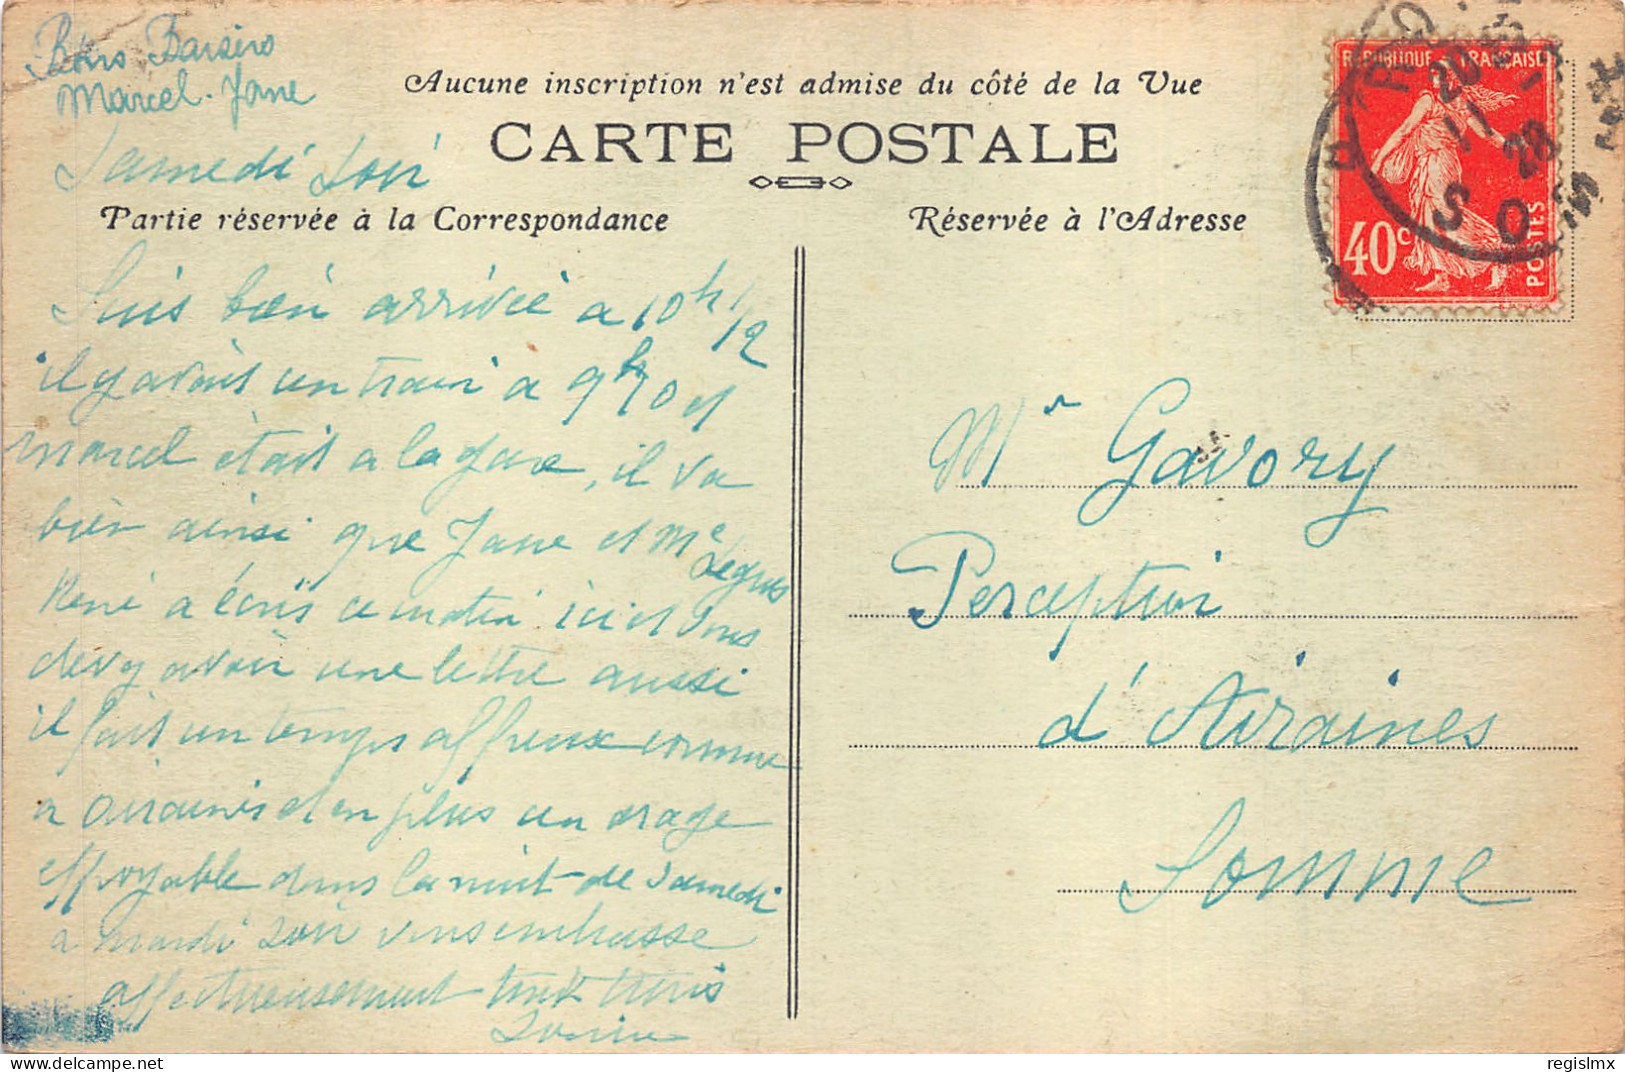 Bons Baisers
Marcel-Jane
Aucune inscription n'est admise du côté de la Vue
CARTE POSTALE
Samedi soir
Partie réservée à la Correspondance
Réservée à l'Adresse
REPUBLIQUE FRANÇAISE
40c
POSTES
20
11
28
Suis bien arrivée a 10h 1/2
il y avait un train a 9h et
Marcel était a la gare, il va
bien ainsi que Jane et Me
René a écris ce matin ici et vous
devez avoir une lettre aussi
il fait un temps affreux comme
a Airaines et en plus un orage
effroyable dans la nuit de Samedi
a mardi soir vous embrasse
affectueusement tous trois
Mr Gavory
Perception
d'Airaines
Somme
regislmx
delcampe.net